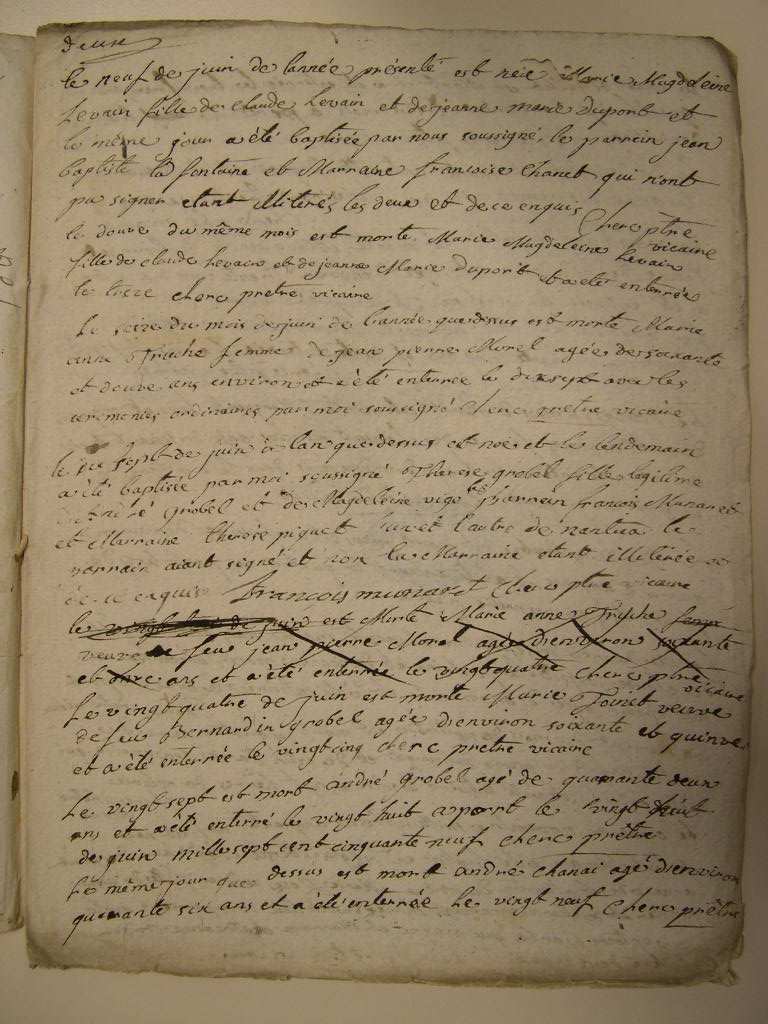 deux
le neuf de juin de lannée présente est née Marie Magdeleine
Levain fille de Claude Levain et de jeanne marie Duport et
le même jour a été baptisée par nous soussigné, le parrein jean
baptiste la fontaine et Marraine francoise Chanet qui n'ont
pu signer etant illiterés les deux et de ce enquis Cherc ptre
vicaire
le douze du même mois est morte Marie Magdeleine Levain
fille de claude Levain et de jeanne Marie Duport et a été enterrée
le treze cherc pretre vicaire
Le seize du mois de juin de l'année que dessus est morte Marie
anne Truche femme de jean pierre Morel agée de soixante
et douze ans environ et a été enterrée le dix sept avec les
ceremonies ordinaires par moi soussigné Cherc pretre vicaire
le dix sept de juin de lan que dessus est née et le lendemain
a été baptisée par moi soussigné Therese grobel fille legitime
André Grobel et de Magdeleine parrein francois Munaret
et Marraine Therese piquet l'autre de nantua le
parrain aiant signé et non la Marraine etant illiterée
de ce enquis francois munaret Cherc ptre vicaire
le vingt de juin est Morte Marie anne Truche
veuve de feu jean pierre Morel agée d'environ soixante
et onze ans et a été enterrée le vingt quatre Cherc ptre
vicaire
Le vingt quatre de juin est morte Marie Toinet veuve
de feu Bernardin grobel agée d'environ soixante et quinze
et a été enterrée le vingt cinq Cherc pretre vicaire
Le vingt sept est mort andré grobel agé de quarante deux
ans et a été enterré le vingt huit a port le vingt huit
de juin mille sept cent cinquante neuf Cherc prêtre
Le même jour que dessus est mort andré chanai agé d'environ
quarante six ans et a été enterrée Le vingt neuf Cherc prêtre